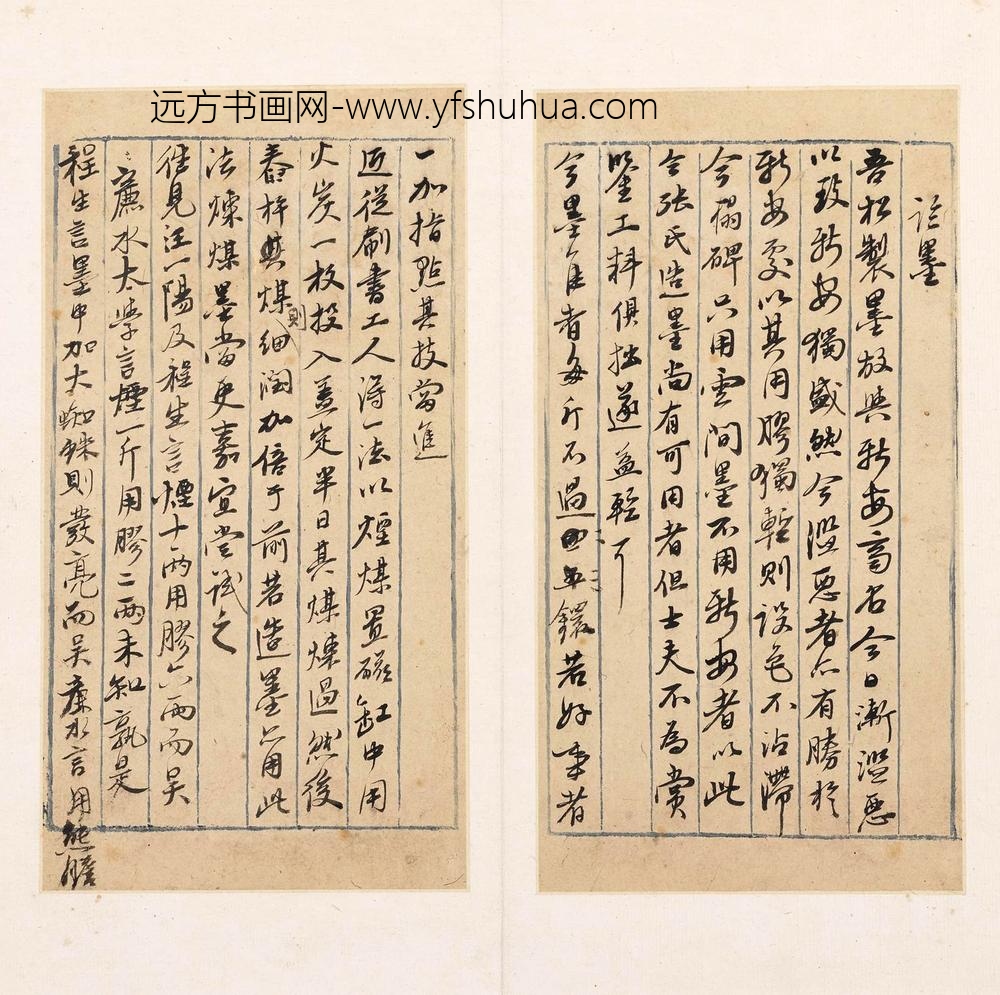 远方书画网-www.yfshuhua.com
論墨
吾松製墨故與新安齊名今日漸濫惡
以致新安獨盛然今濫惡者亦有勝於
新安處以其用膠獨輕則設色不沾滯
今榻碑只用雲間墨不用新安者以此
今張氏造墨尚有可用者但士夫不為賞
鑒工料俱拙遂益輕下
今墨佳者每斤不過四五鐶若好事者
一加指點其技當進
近從刷書工人得一法以煙煤置磁缸中用
火炭一枚投入蓋定半日其煤煉過然後
舂杵其煤則細潤加倍于前若造墨只用此
法煉煤墨當更嘉宜嘗試之
往見汪一陽及程生言煙十兩用膠六兩而吳
廉水太學言煙一斤用膠二兩未知孰是
程生言墨中加大蜘蛛則發亮而吳廉水言用熊膽